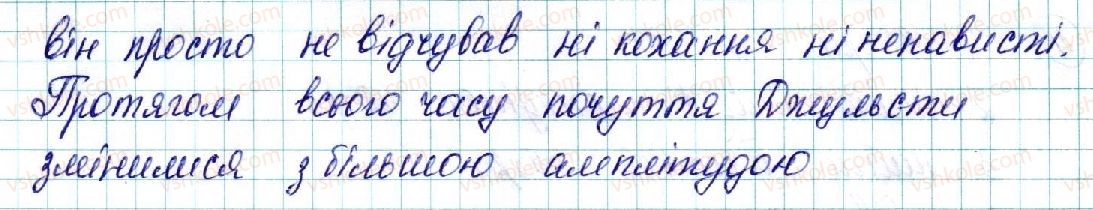 він просто не відчував ні кохання ні ненависті.
Протягом всього часу почуття Джульєти
змінилися з більшою амплітудою